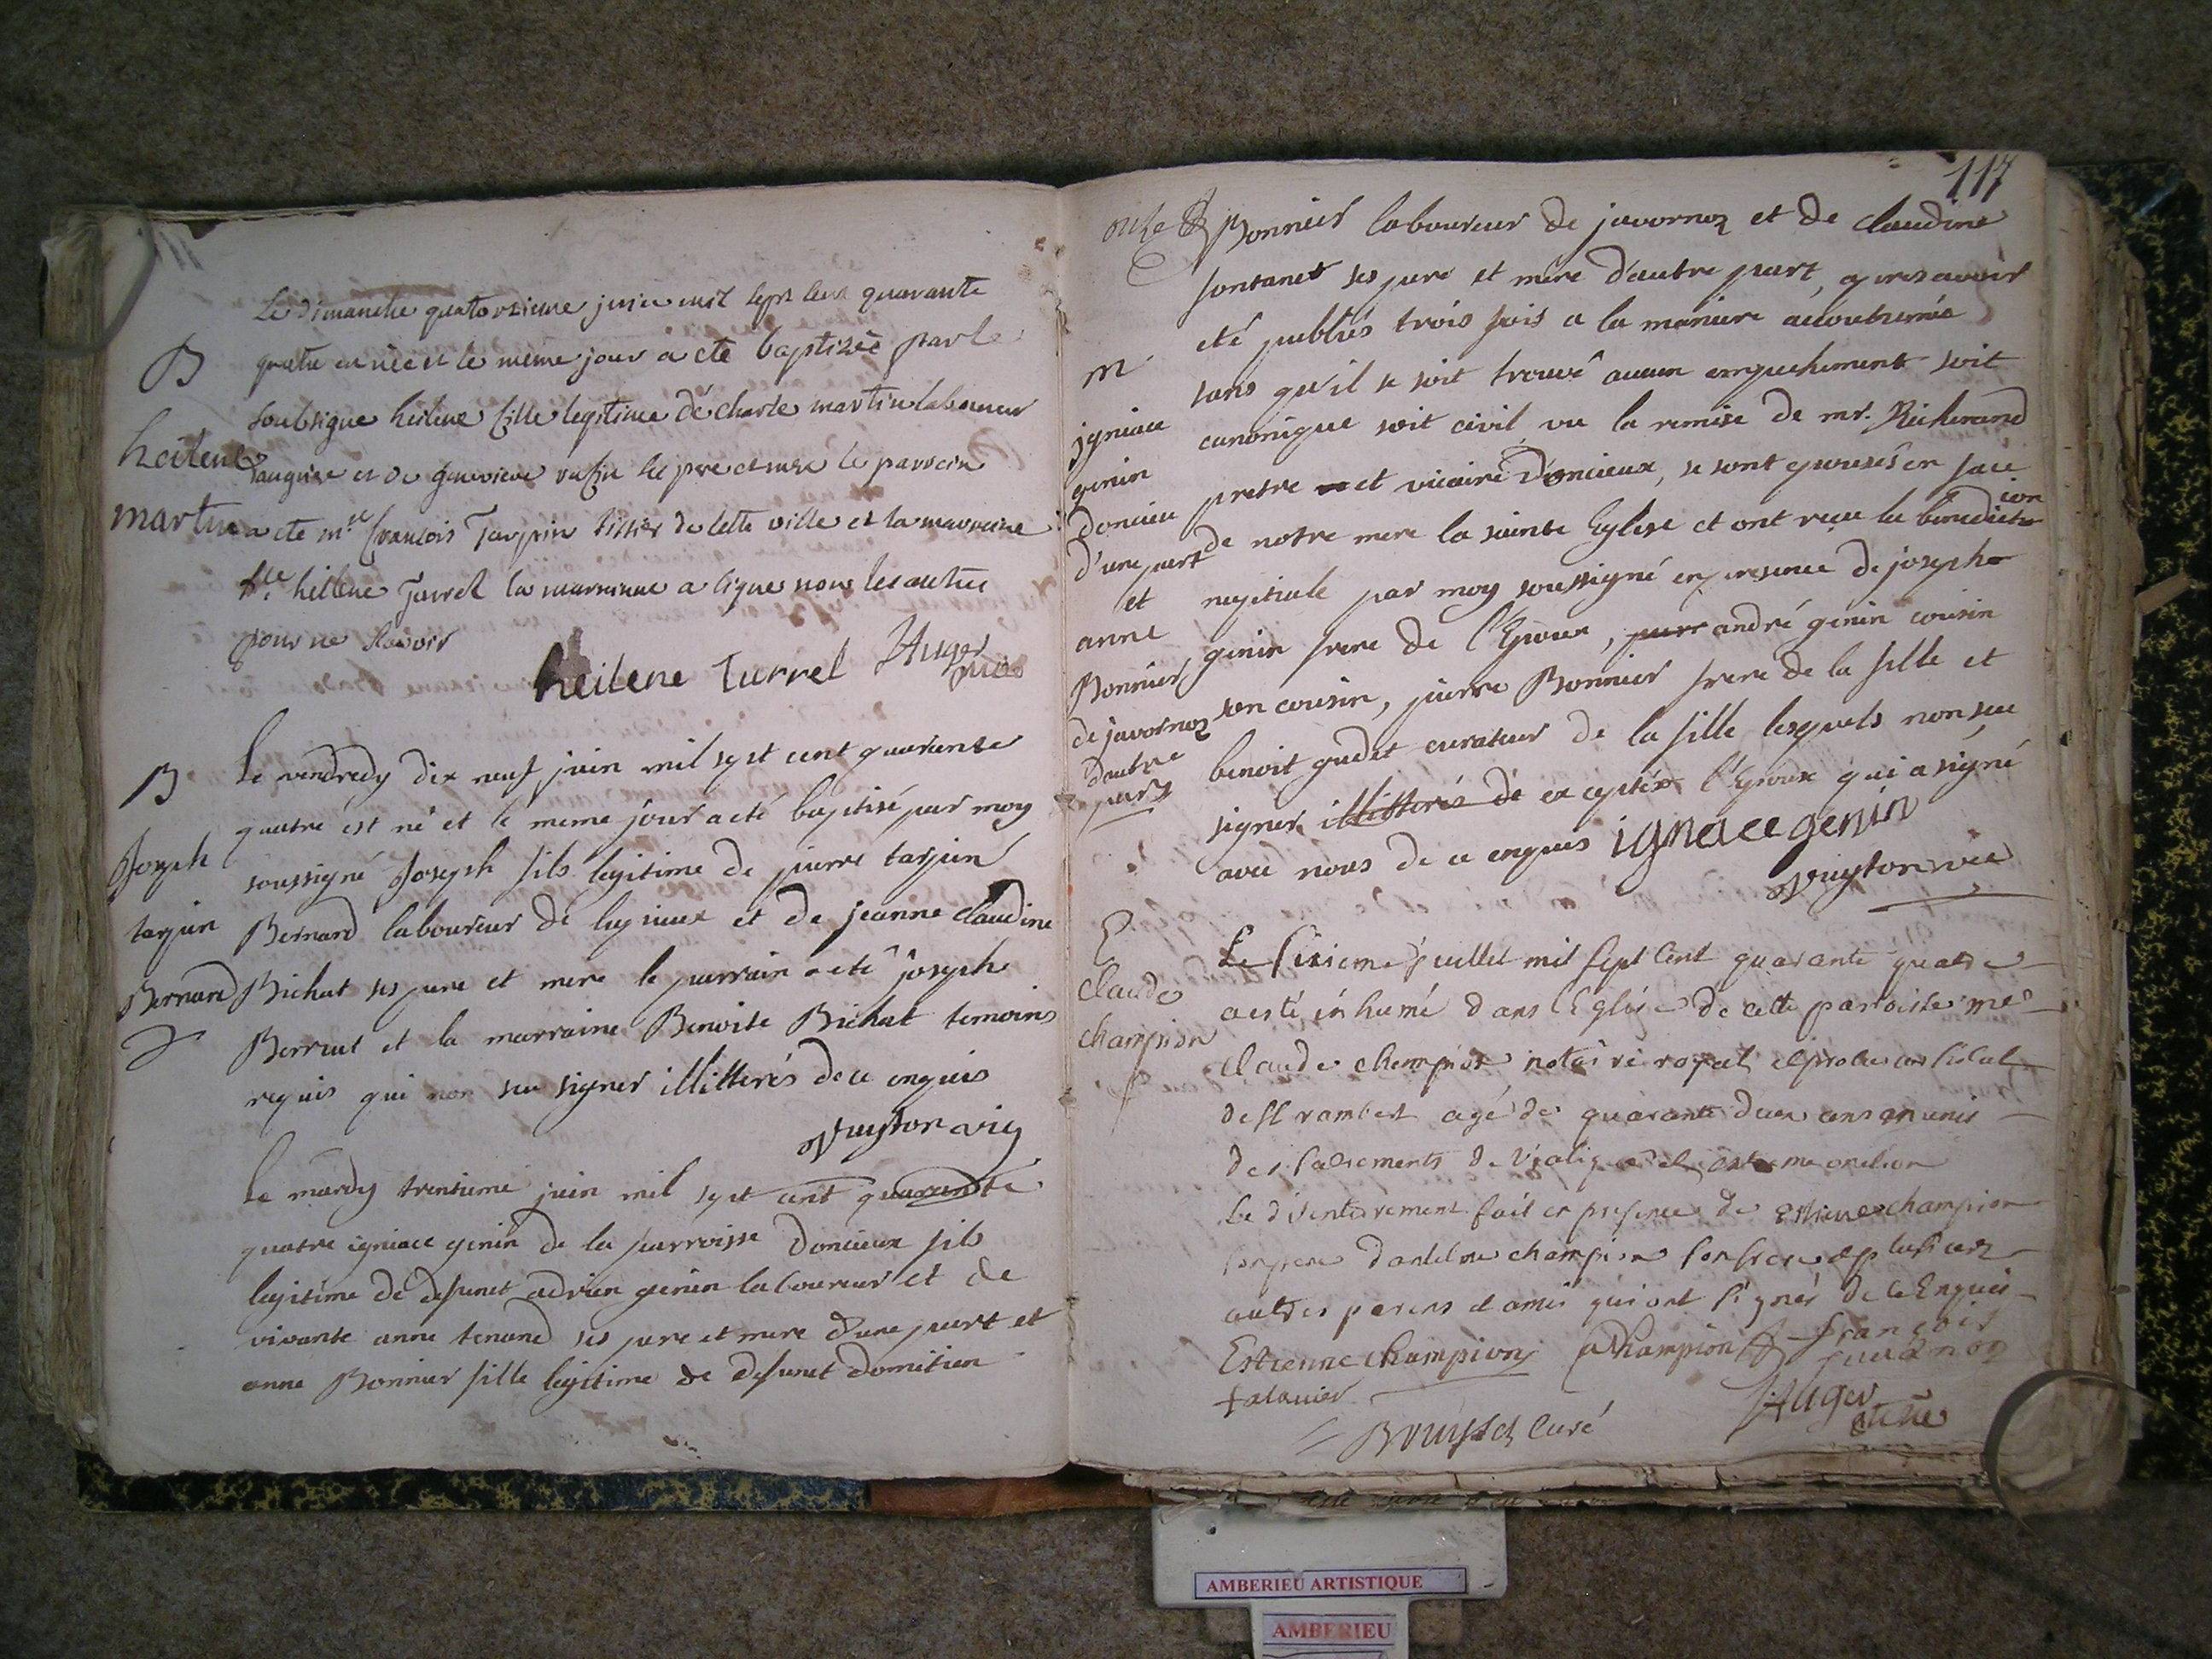 Le dimanche quatorzieme juin mil sept cent quarante
B
quatre est née et le meme jour a eté baptizée par le
soubsigné heilene fille legitime de charle martin laboureur
heilene
et de genevieve ses pere et mere le parrein
martin
a eté mre francois Tarpin de cette ville et la marreine
hillene Turrel la marreine a signé non les autres
pour ne scavoir
heilene Turrel
Auger
B
Le vendredy dix neuf juin mil sept cent quarante
quatre est né et le meme jour a eté baptisé par moy
Joseph
soussigné Joseph fils legitime de pierre tarpin
tarpin
Bernard laboureur de et de jeanne claudine
Bernard
Bichat ses pere et mere le parrain a eté joseph
Berrut et la marraine Benoite Bichat temoins
requis qui non seu signer illitterés de ce enquis
vic
Le mardy trentieme juin mil sept cent quarante
quatre igniace genin de la parroisse doncieux fils
legitime de defunct adrien genin laboureur et de
vivante anne tenand ses pere et mere d'une part et
anne Bonnier fille legitime de defunct domitien
117
Bonnier laboureur de javornoz et de claudine
fontanet ses pere et mere d'autre part, apres avoir
eté publiés trois fois a la maniere accoutumée
m
sans qu'il se soit trouvé aucun empechement soit
igniace
canonique soit civil, vu la remise de mr. Richerand
genin
prestre et vicaire d'oncieux, se sont epousés en face
doncieu
de notre mere la sainte Eglise et ont reçu la benediction
d'une part
et
nuptiale par moy soussigné en presence de joseph
anne
genin frere de l'Epoux, andré genin cousin
Bonnier
son cousin, pierre Bonnier frere de la fille et
de javornoz
d'autre
part
benoit gudet curateur de la fille lesquels non seu
signer illitterés de exceptés l'Epoux qui a signé
avec nous de ce enquis ignace genin
vic
Le sixieme juillet mil sept cent quarante quatre
claude
a esté inhumé dans l'Eglise de cette parroisse me
champion
claude champion notaire royal et procureur
de st rambert agé de quarante deux ans munis
des sacrements de viatique et extreme onction
le dit enterrement fait en presence de estienne champion
son pere champion son frere et plusieurs
autres parens et amis qui ont signés de ce Enquis
Estienne champion champion françois
Auger
curé